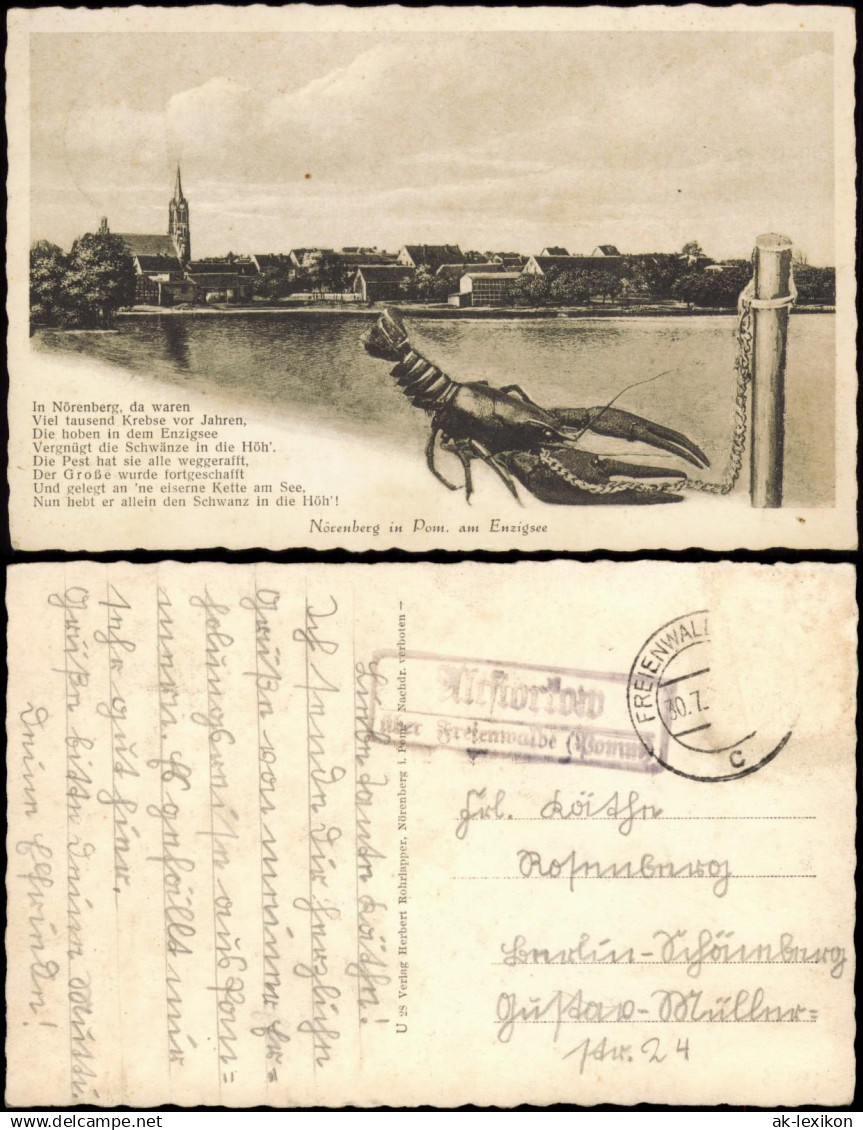 In Nörenberg, da waren
Viel tausend Krebse vor Jahren,
Die hoben in dem Enzigsee
Vergnügt die Schwänze in die Höh'.
Die Pest hat sie alle weggerafft,
Der Große wurde fortgeschafft
Und gelegt an 'ne eiserne Kette am See,
Nun hebt er allein den Schwanz in die Höh'!
Nörenberg in Pom. am Enzigsee
Liebe Tante Käthe!
Ich sende Dir herzliche
Grüße von meiner Er=
holungsreise aus Pom=
mern. Es gefällt mir
sehr gut hier.
Grüße bitte Deine Mutti.
Deine Elfriede!
U 28 Verlag Herbert Rohrlapper, Nörenberg i. Pom. Nachdr. verboten
Altstorkow
über Freienwalde (Pomm)
FREIENWAL
30.7.
c
Frl. Käthe
Rosenberg
Berlin-Schöneberg
Gustav-Müller=
str. 24
delcampe.net
ak-lexikon